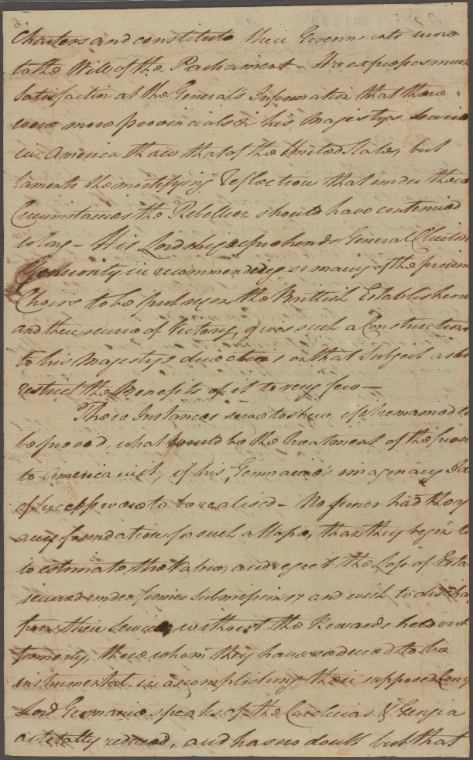 Charters and constitute their Governments more
to the Will of the Parliament – He expresses much
satisfaction at the General's Information that there
were more provincials in his Majestys service
in America than that of the United States, but
laments the mortifying reflection that under these
Circumstances the Rebellion should have continued
so long – His Lordship apprehends General Clinton's
Generosity in recommending so many of the provincial
Corps to be put upon the British Establishment
and then secure of Victory, gives such a Construction
to his Majestys directions on that Subject as to
restrict the Benefits of it to very few –
These Instances serve to shew, if it remained to
be proved, what would be the treatment of the
to America &, if his Germaine's imaginary
of success were to be realised – No sooner had they
any foundation for such a Hope, than they begin
to estimate the Value, and reject the Loss of
secured under former Submissions and wish to
from their Service, without the Rewards held out
formerly, those whom they have seduced to be
instrumental in accomplishing their supposed
Lord Germaine speaks of the Carolinas & Georgia
as totally reduced, and has no doubt but that